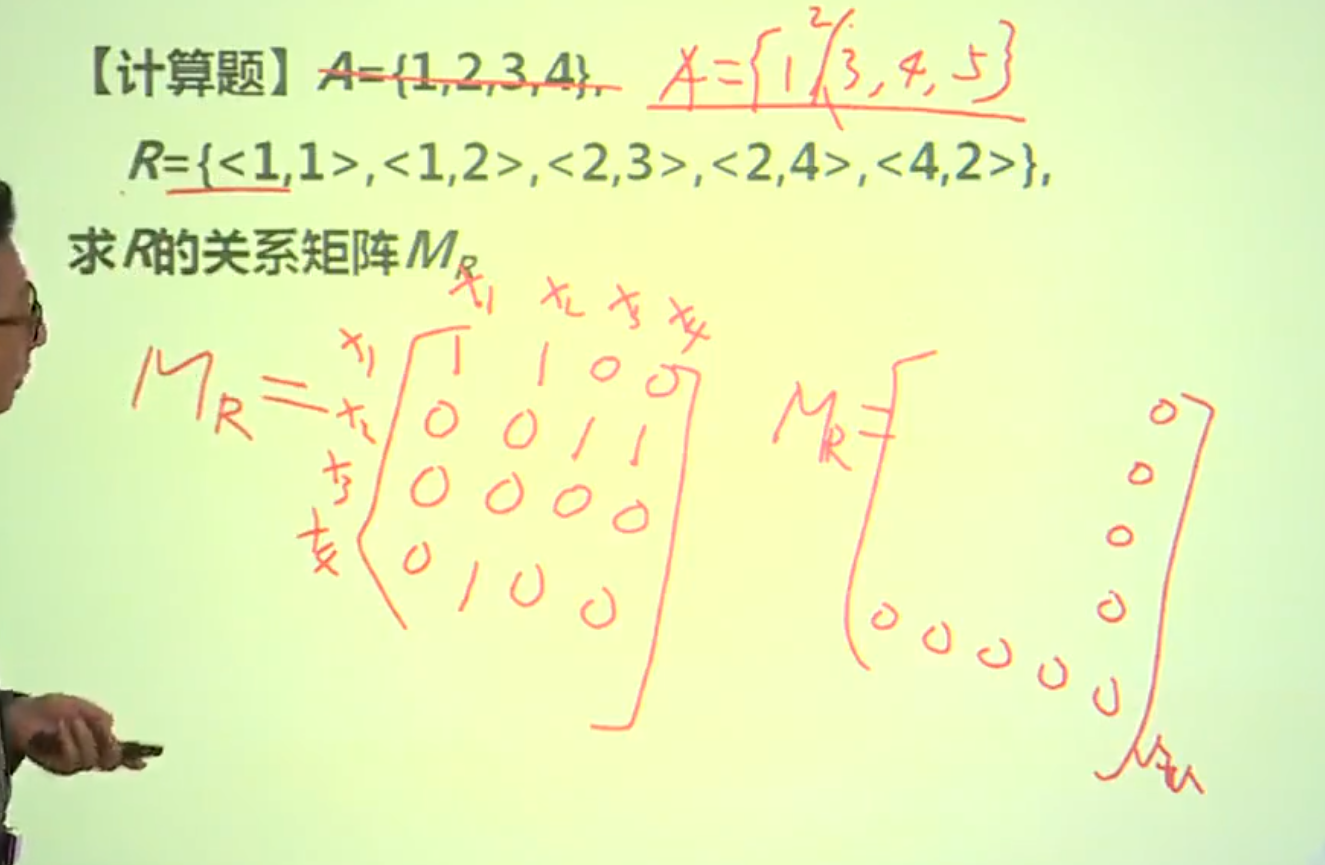 【计算题】A={1,2,3,4}, A={1,2,3,4,5}
R={<1,1>,<1,2>,<2,3>,<2,4>,<4,2>},
求R的关系矩阵M_R
x₁ x₂ x₃ x₄
M_R = x₁ 1 1 0 0
x₂ 0 0 1 1
x₃ 0 0 0 0
x₄ 0 1 0 0
M_R =
0
0
0
0
0 0 0 0 0